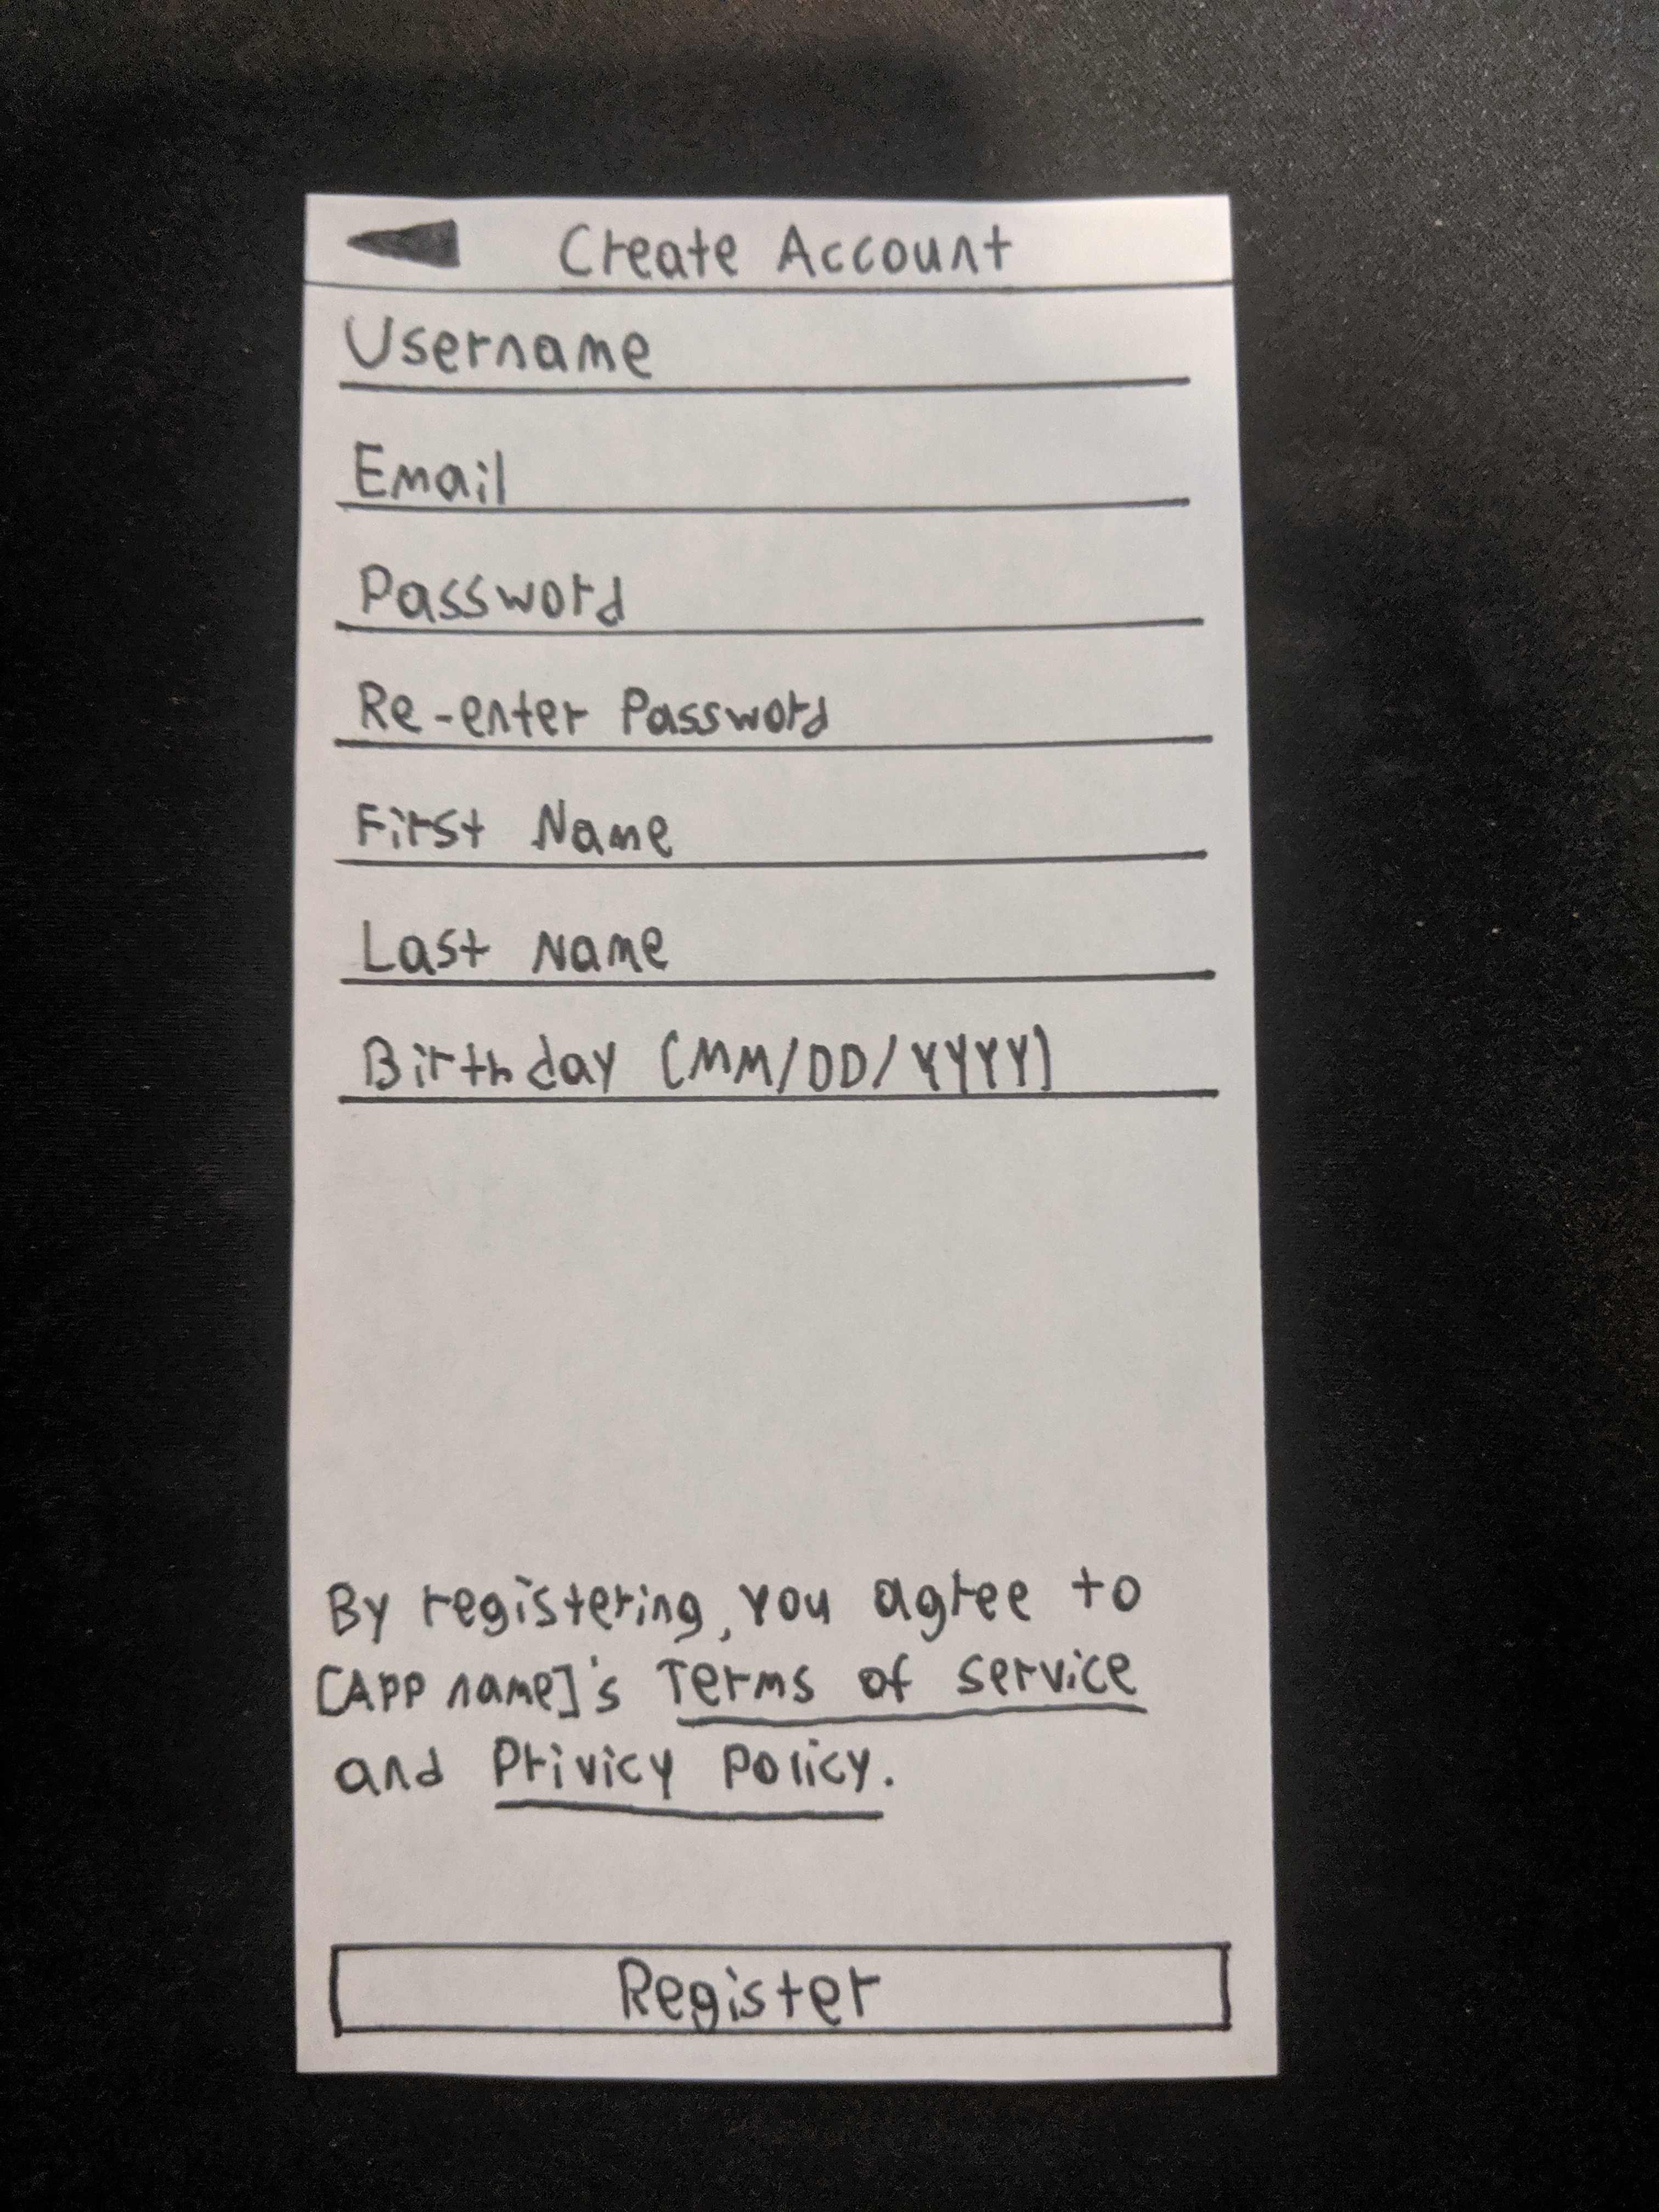 Create Account
Username
Email
Password
Re-enter Password
First Name
Last Name
Birthday (MM/DD/YYYY)
By registering, you agree to
[App name]'s Terms of service
and Privicy Policy.
Register